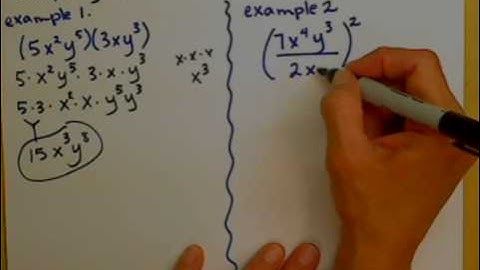 example 1.
(5x²y⁵)(3xy³)
5·x²y⁵·3·x·y³
5·3·x²·x·y⁵y³
15x³y⁸
x·x·x
x³
example 2
(7x⁴y³/2x)²